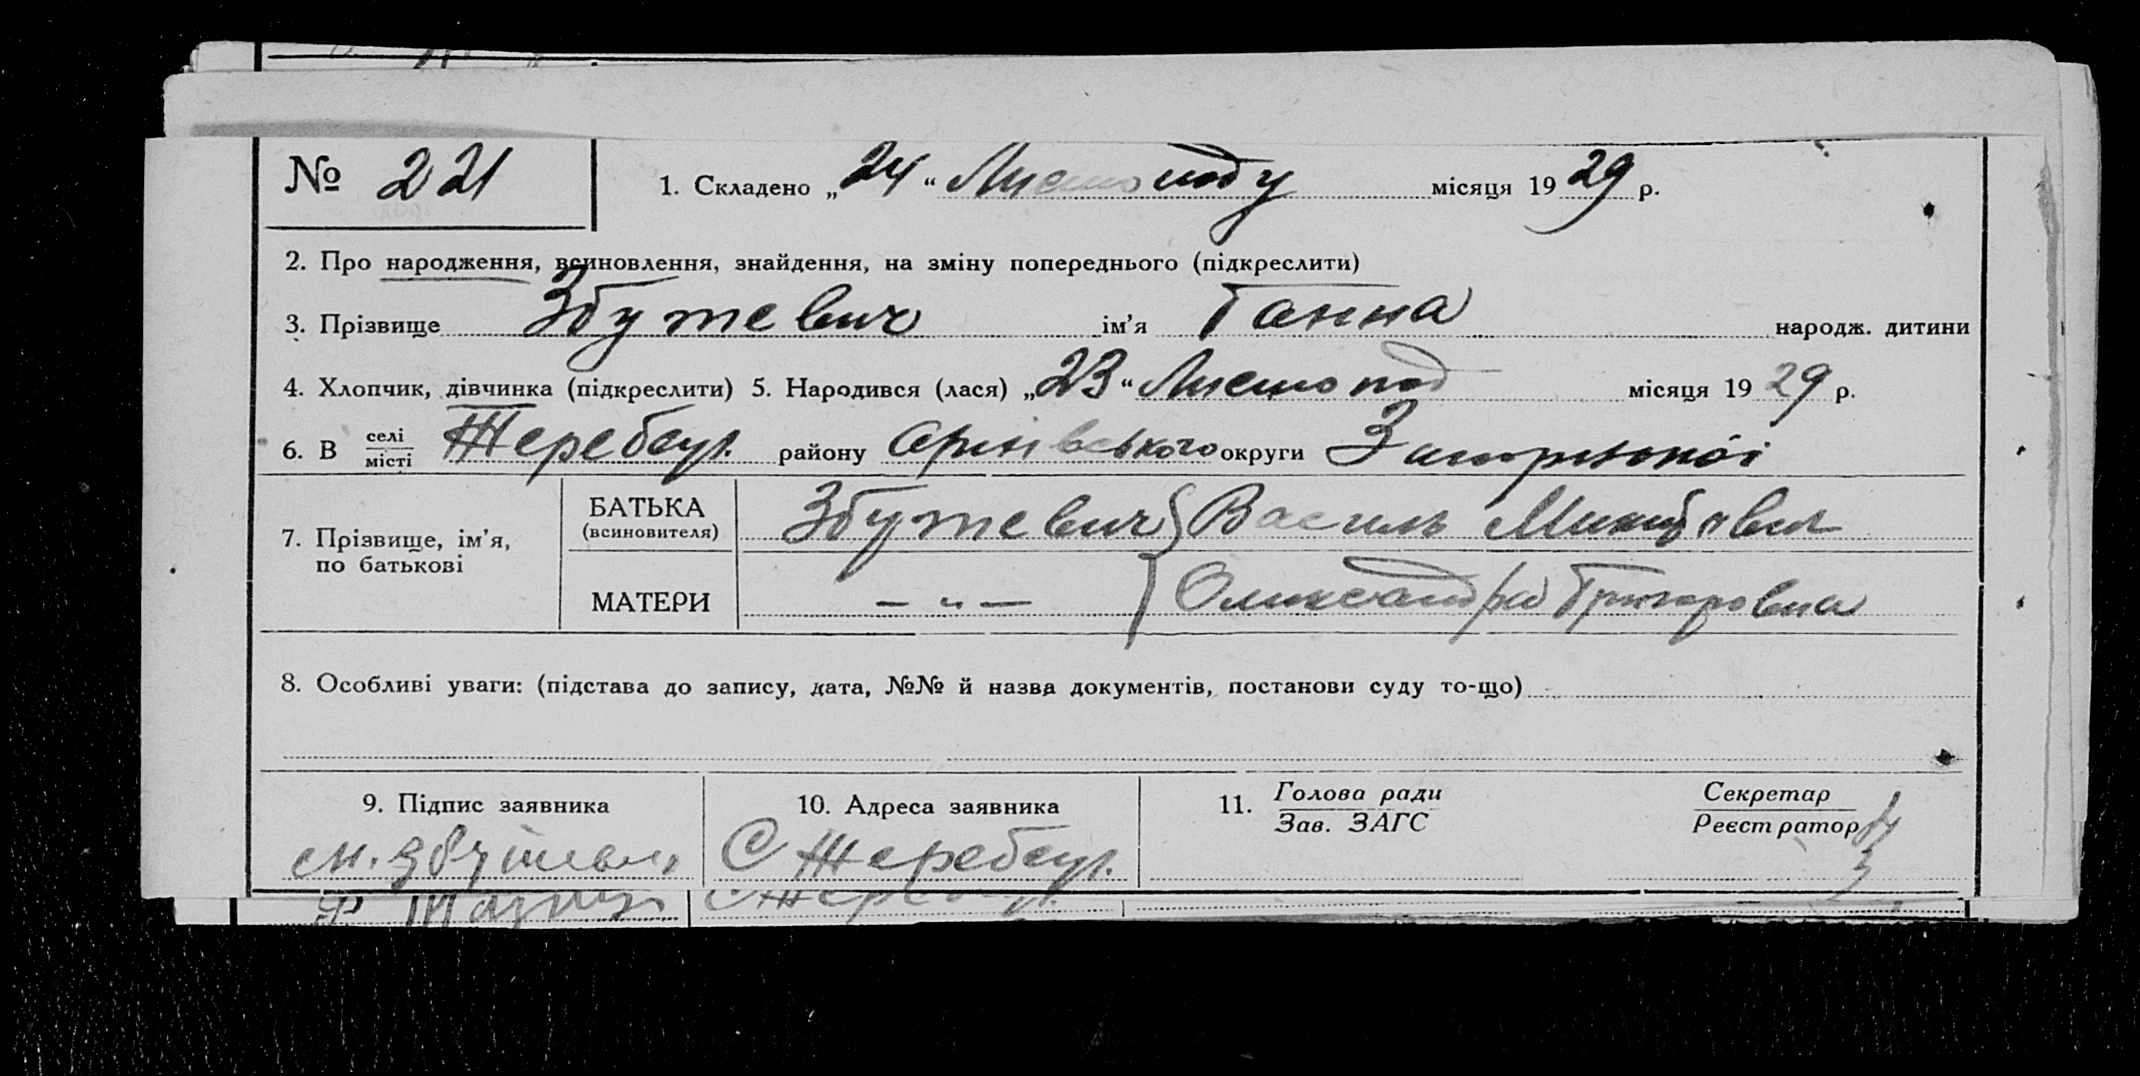 № 221 1. Складено „24“ Листопаду місяця 1929 р.
2. Про народження, всиновлення, знайдення, на зміну попереднього (підкреслити)
3. Прізвище Збутевич ім'я Ганна народж. дитини
4. Хлопчик, дівчинка (підкреслити) 5. Народився (лася) „23“ Листопад місяця 1929 р.
6. В селі місті району округи
7. Прізвище, ім'я, по батькові
БАТЬКА (всиновителя) Збутевич Василь
МАТЕРИ — " — Олександра Григоровна
8. Особливі уваги: (підстава до запису, дата, №№ й назва документів, постанови суду то-що)
9. Підпис заявника 10. Адреса заявника 11. Голова ради Секретар
Зав. ЗАГС Реєстратор